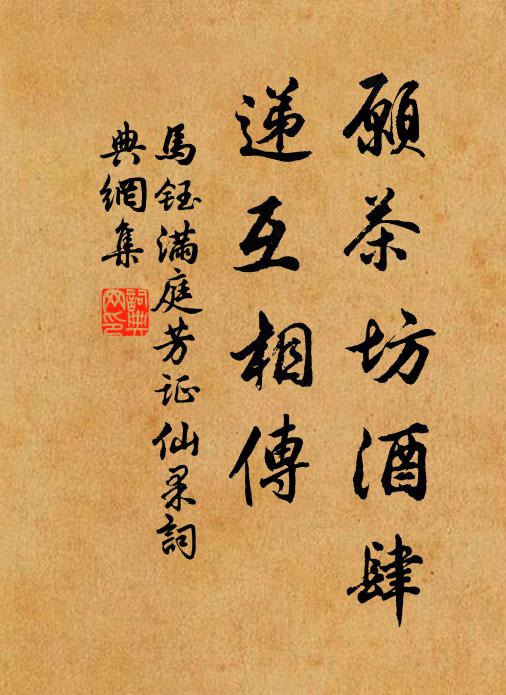 願茶坊酒肆
遞互相傳
馬鈺滿庭芳证仙果詞
典網集
詞典网印